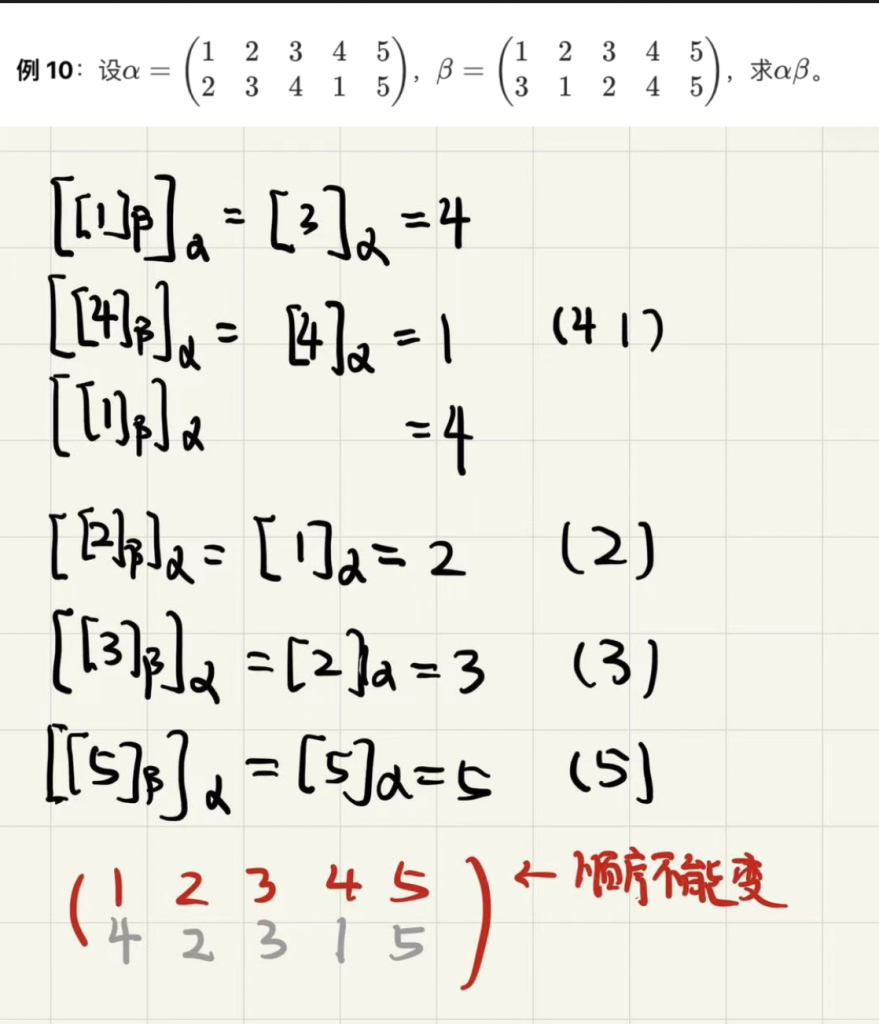 例 10：设α = (1 2 3 4 5
2 3 4 1 5)，β = (1 2 3 4 5
3 1 2 4 5)，求αβ。
[[1]β]α = [3]α = 4
[[4]β]α = [4]α = 1 (4 1)
[[1]β]α = 4
[[2]β]α = [1]α = 2 (2)
[[3]β]α = [2]α = 3 (3)
[[5]β]α = [5]α = 5 (5)
(1 2 3 4 5) ← 顺序不能变
4 2 3 1 5